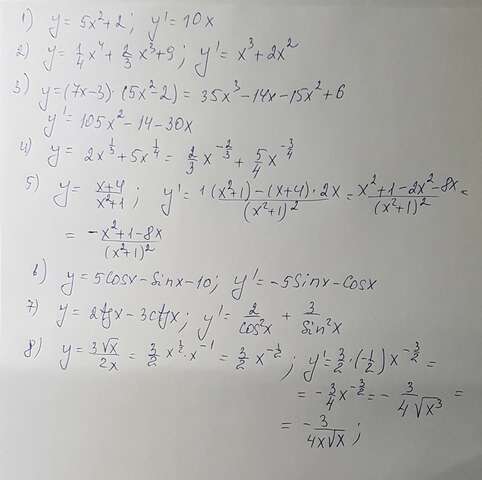 1) y = 5x²+2; y' = 10x
2) y = 1/4 x⁴ + 2/3 x³ + 9; y' = x³ + 2x²
3) y = (7x-3)·(5x²-2) = 35x³ - 14x - 15x² + 6
y' = 105x² - 14 - 30x
4) y = 2x^(1/3) + 5x^(1/4) = 2/3 x^(-2/3) + 5/4 x^(-3/4)
5) y = (x+4)/(x²+1); y' = (1(x²+1)-(x+4)·2x)/(x²+1)² = (x²+1-2x²-8x)/(x²+1)² =
= (-x²+1-8x)/(x²+1)²
6) y = 5cosx - sinx - 10; y' = -5sinx - cosx
7) y = 2tgx - 3ctgx; y' = 2/cos²x + 3/sin²x
8) y = 3√x/2x = 3/2 x^(1/2) · x^(-1) = 3/2 x^(-1/2); y' = 3/2·(-1/2)x^(-3/2) =
= -3/4 x^(-3/2) = - 3/(4√x³) =
= -3/(4x√x);